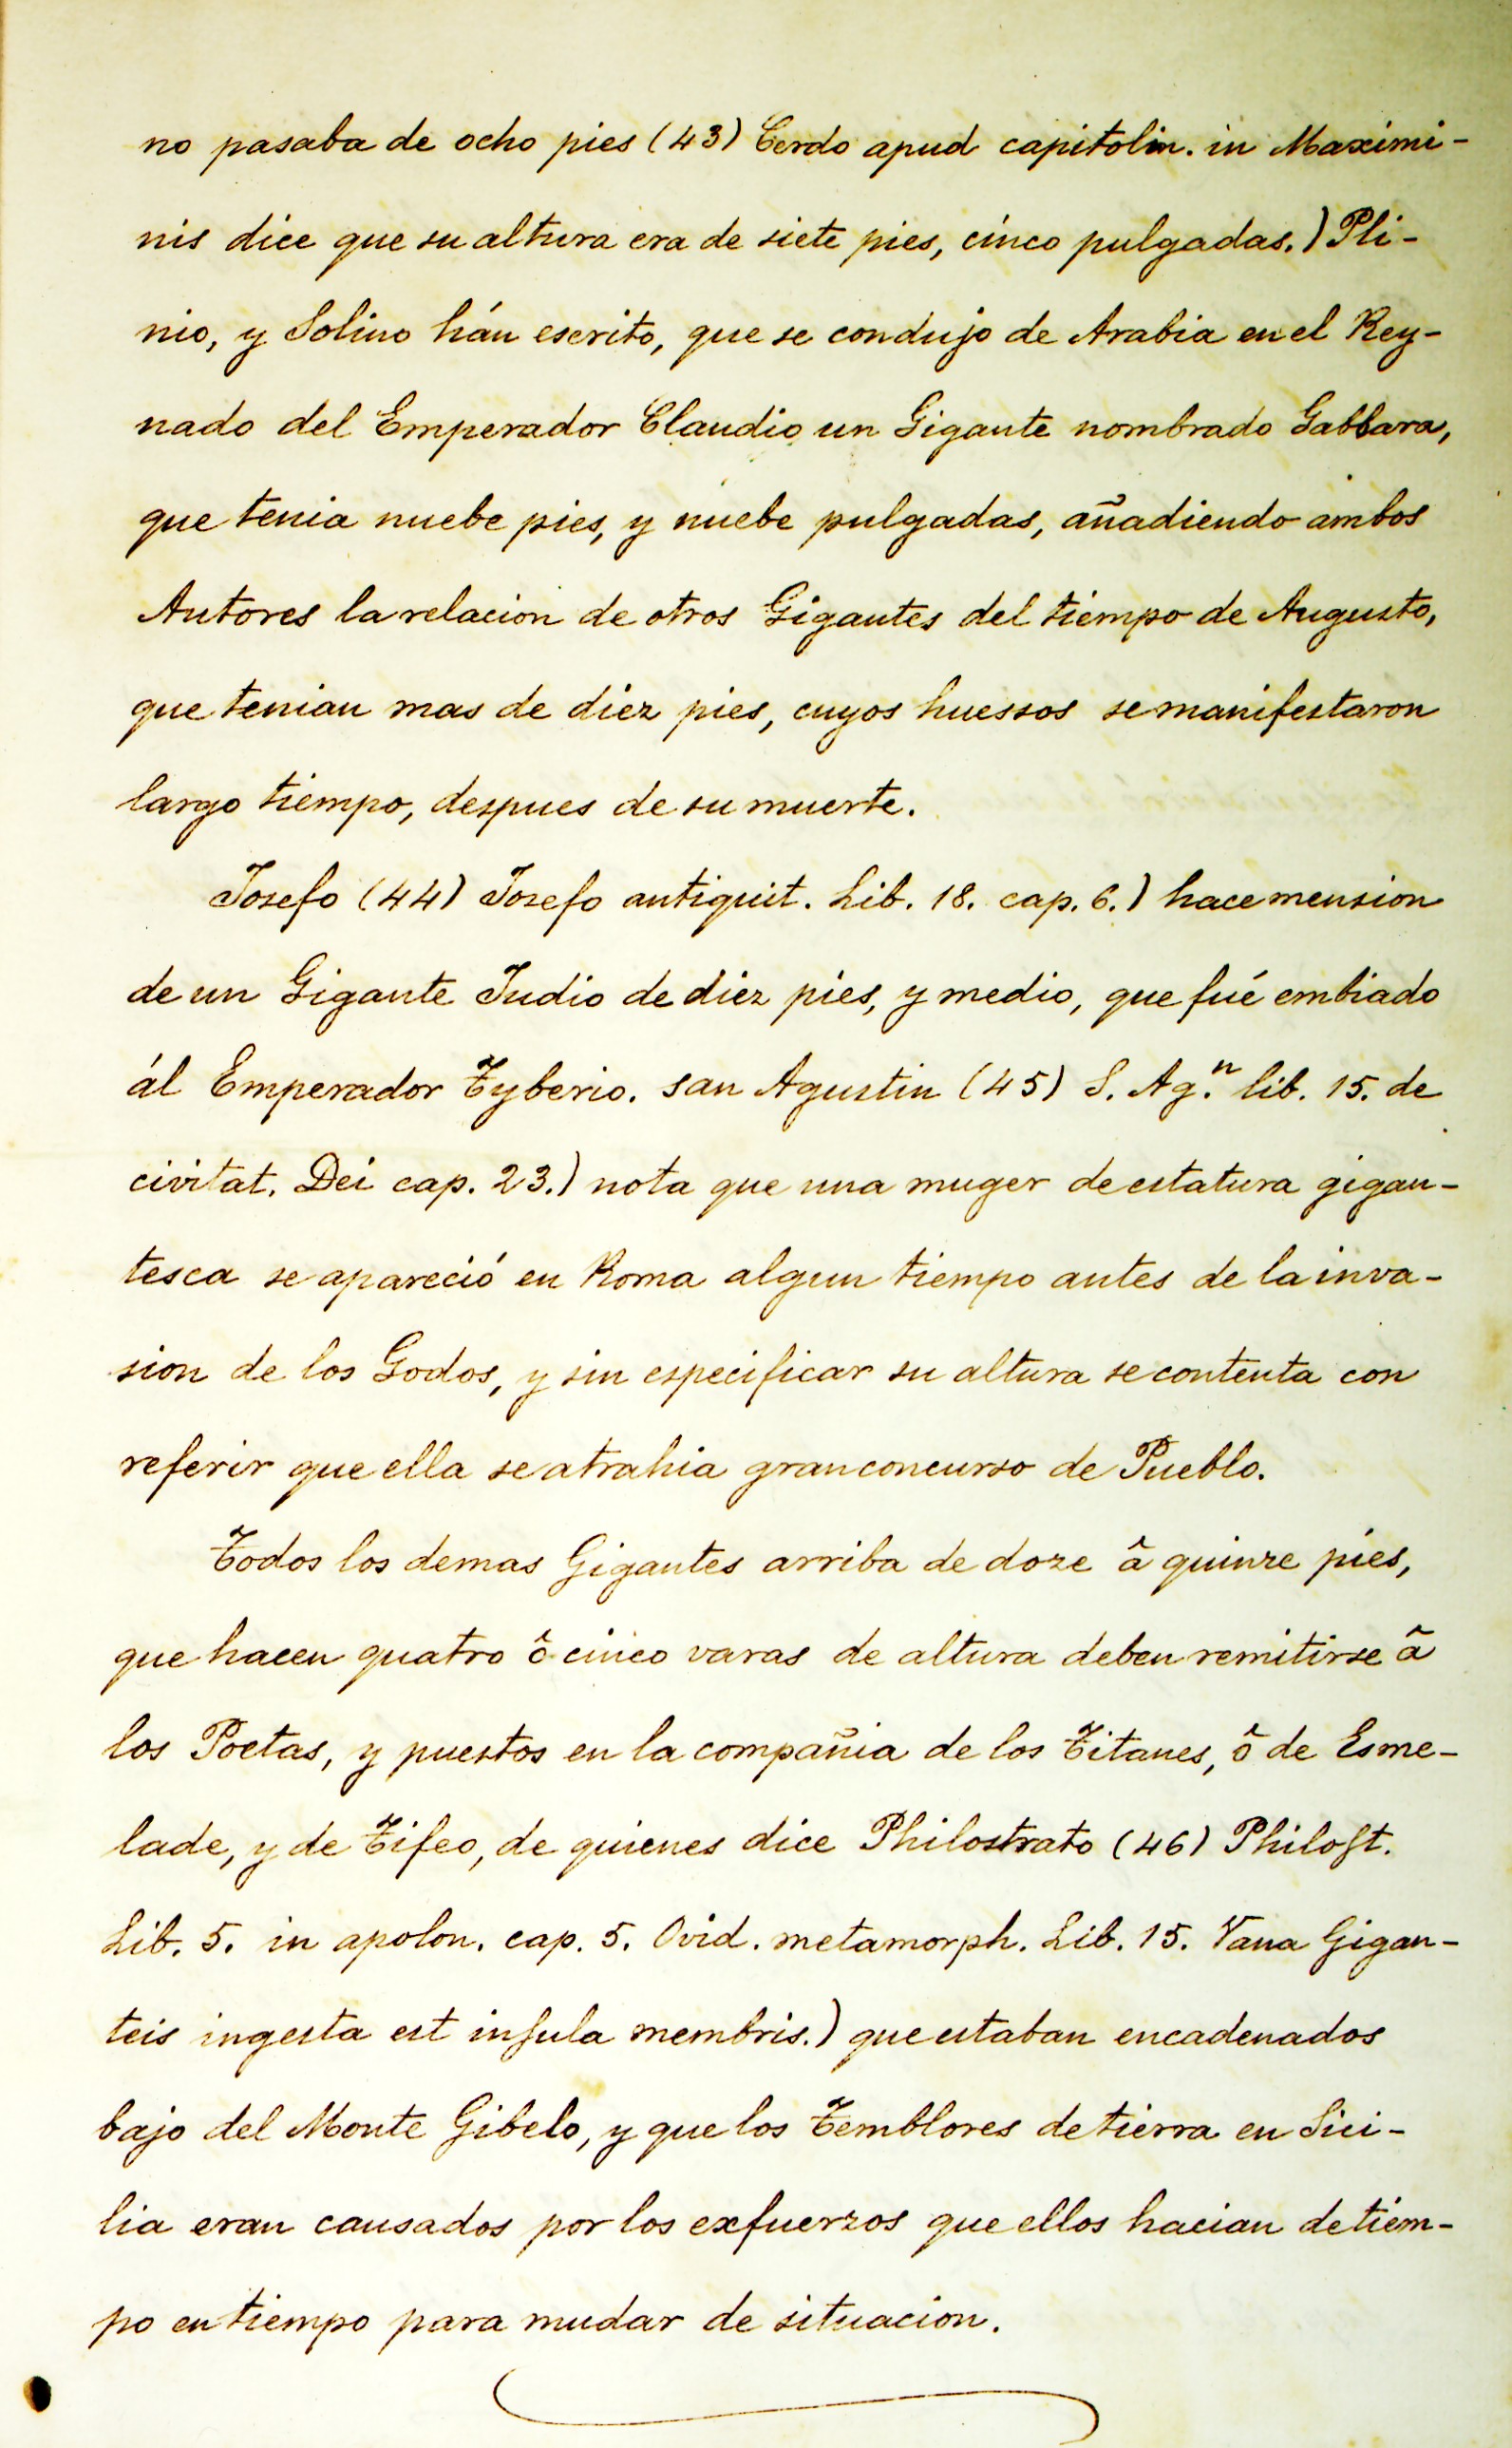 no pasaba de ocho pies (43) Cerdo apud capitolin. in Maximi-
nis dice que su altura era de siete pies, cinco pulgadas.) Pli-
nio, y Solino hán escrito, que se condujo de Arabia en el Rey-
nado del Emperador Claudio un Gigante nombrado Gabbara,
que tenia nuebe pies, y nuebe pulgadas, añadiendo ambos
Autores la relacion de otros Gigantes del tiempo de Augusto,
que tenian mas de diez pies, cuyos huessos se manifestaron
largo tiempo, despues de su muerte.
Josefo (44) Josefo antiquit. Lib. 18. cap. 6.) hace mension
de un Gigante Judio de diez pies, y medio, que fué embiado
ál Emperador Tyberio. san Agustin (45) S. Ag.ⁿ lib. 15. de
civitat. Dei cap. 23.) nota que una muger de estatura gigan-
tesca se apareció en Roma algun tiempo antes de la inva-
sion de los Godos, y sin especificar su altura se contenta con
referir que ella se atrahia gran concurso de Pueblo.
Todos los demas Gigantes arriba de doze â quinze pies,
que hacen quatro ô cinco varas de altura deben remitirse â
los Poetas, y puestos en la compañia de los Titanes, ô de Esme-
lade, y de Tifeo, de quienes dice Philostrato (46) Philoſt.
Lib. 5. in apolon. cap. 5. Ovid. metamorph. Lib. 15. Vana Gigan-
teis ingesta est inſula membris.) que estaban encadenados
bajo del Monte Gibelo, y que los Temblores de tierra en Sici-
lia eran causados por los exfuerzos que ellos hacian de tiem-
po en tiempo para mudar de situacion.